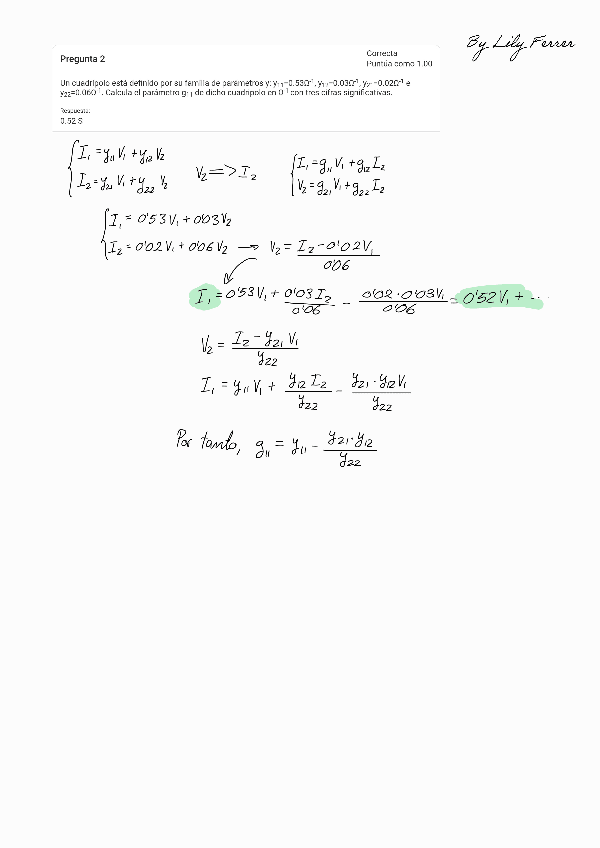 By Lily Ferrer
Pregunta 2
Correcta
Puntúa como 1.00
Un cuadripolo está definido por su familia de parámetros y: y₁₁=0.53Ω⁻¹, y₁₂=0.03Ω⁻¹, y₂₁=0.02Ω⁻¹ e
y₂₂=0.06Ω⁻¹. Calcula el parámetro g₁₁ de dicho cuadripolo en Ω⁻¹ con tres cifras significativas.
Respuesta:
0.52 S
{ I₁ = y₁₁ V₁ + y₁₂ V₂
I₂ = y₂₁ V₁ + y₂₂ V₂
V₂ => I₂
{ I₁ = g₁₁ V₁ + g₁₂ I₂
V₂ = g₂₁ V₁ + g₂₂ I₂
{ I₁ = 0'53 V₁ + 0'03 V₂
I₂ = 0'02 V₁ + 0'06 V₂ → V₂ = (I₂ - 0'02 V₁) / 0'06
I₁ = 0'53 V₁ + 0'03 I₂ / 0'06 - 0'02 · 0'03 V₁ / 0'06 = 0'52 V₁ + ...
V₂ = (I₂ - y₂₁ V₁) / y₂₂
I₁ = y₁₁ V₁ + y₁₂ I₂ / y₂₂ - y₂₁ · y₁₂ V₁ / y₂₂
Por tanto, g₁₁ = y₁₁ - y₂₁ · y₁₂ / y₂₂